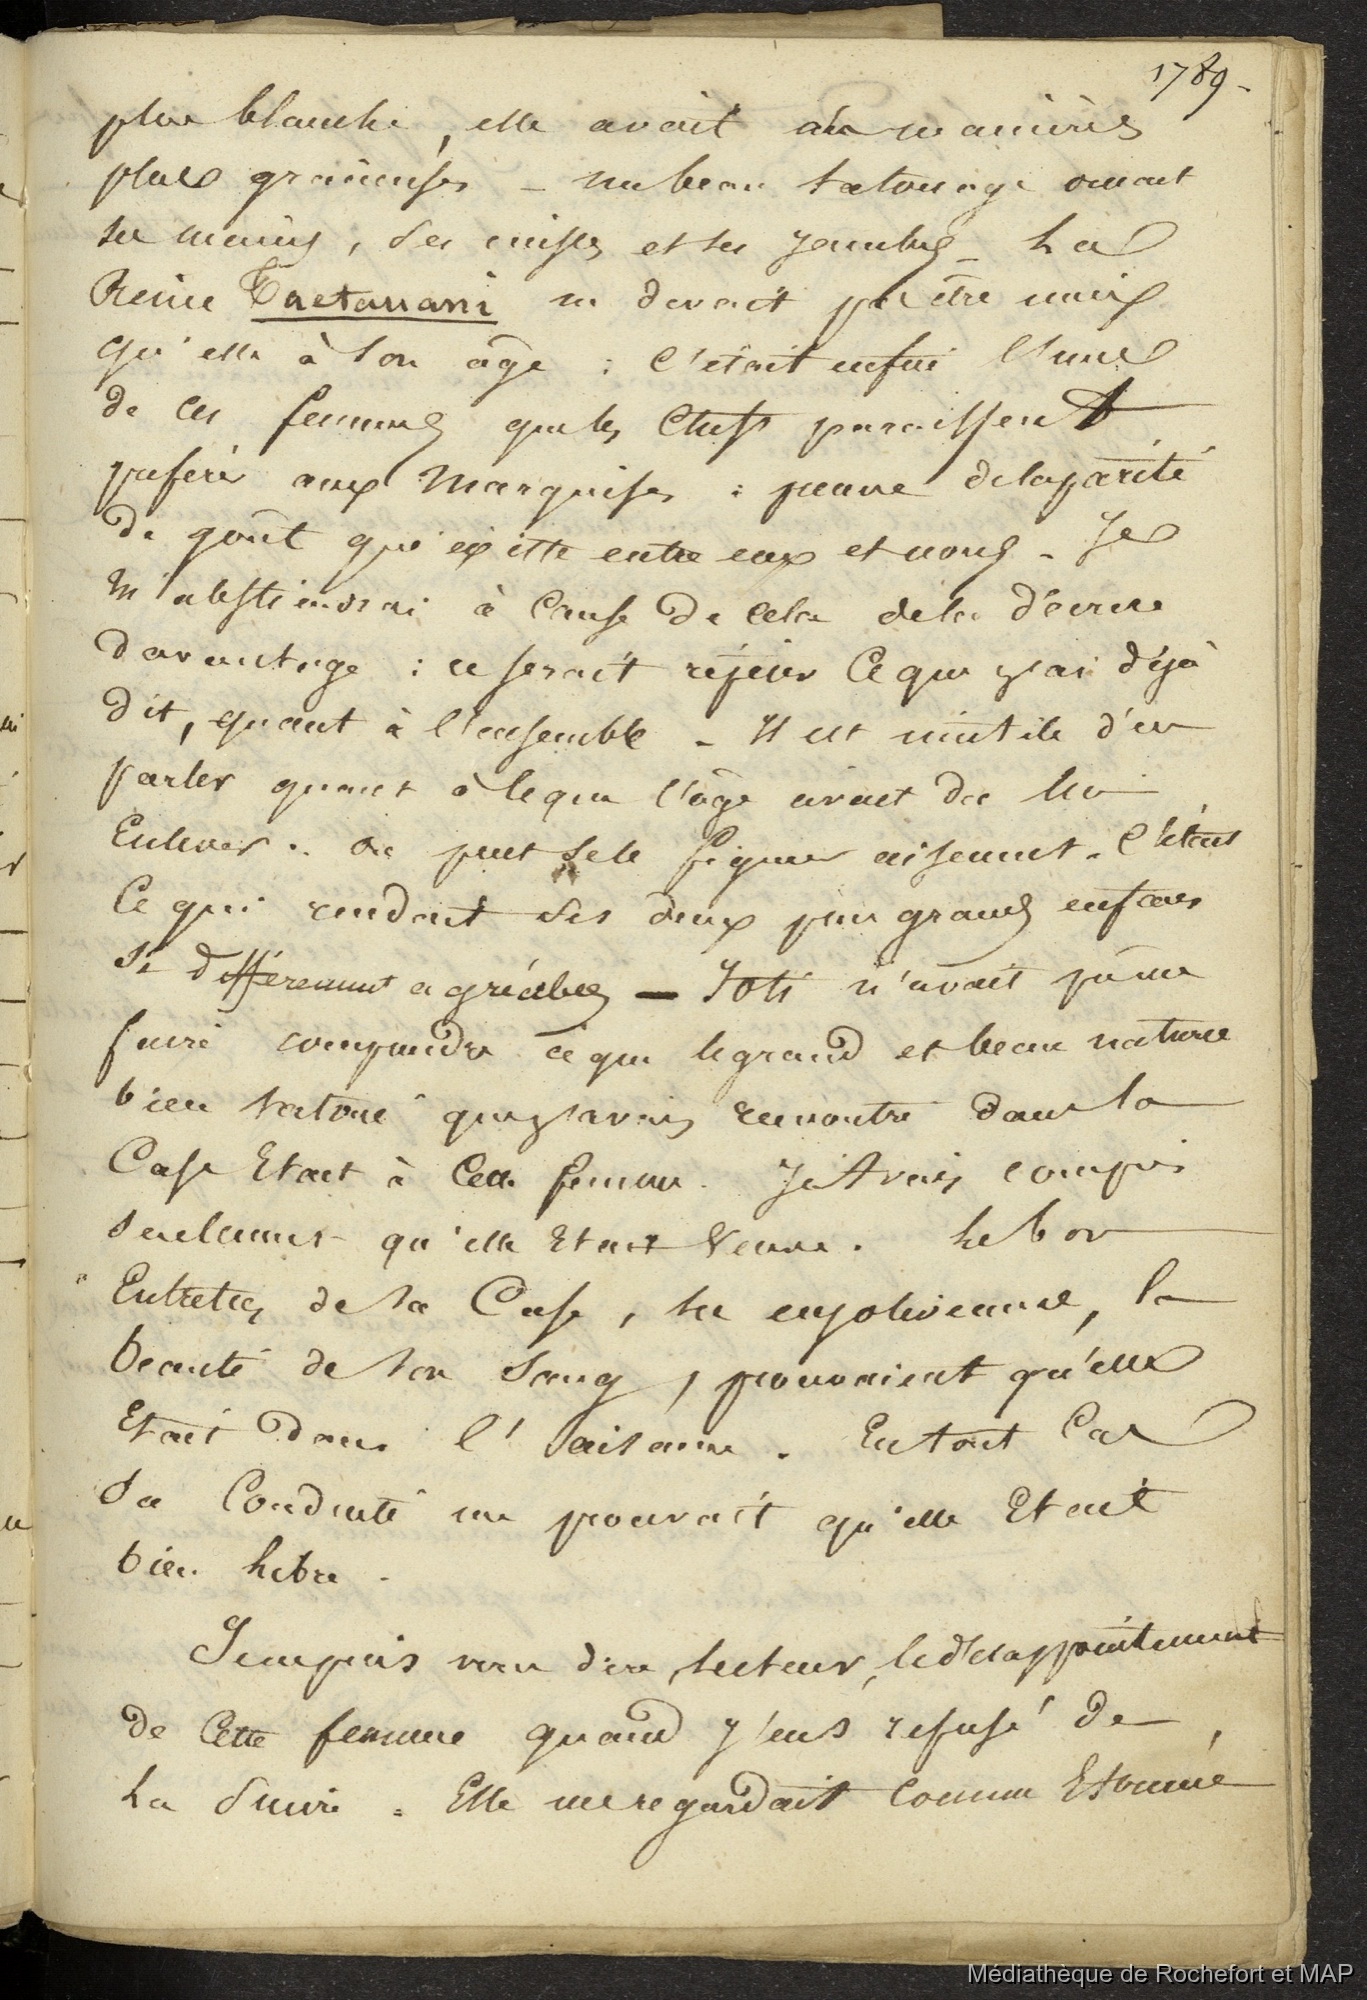 1789 -
plus blanche, elle avait des manières
plus gracieuses _ un beau tatouage ornait
ses mains, ses cuisses et ses jambes _ La
Reine Taetouani ne devait pas être mieux
qu'elle à son âge : c'était enfin l'une
de ces femmes que les Chefs paraissent
préférer aux Marquises : preuve de la parité
de goût qui existe entre eux et nous - Je
m'abstiendrai à cause de cela de la décrire
davantage : ce serait répéter ce que j'ai déjà
dit, quant à l'ensemble - Il est inutile d'en
parler quant à ce que l'âge avait dû lui
Enlever .. on peut se le figurer aisément. C'était
Ce qui rendait ses deux plus grands enfans
si différemment agréables — Toti n'avait pû me
faire comprendre ce que le grand et beau naturel
bien tatoué que j'avais rencontré dans la
Case Etait à Cette femme. J'Avais compris
seulement qu'elle Etait Veuve. Le bon
Entretien de sa Case, ses enjolivemens, la
beauté de son sang, prouvaient qu'elle
Etait dans l'aisance. En tout Cas
sa Conduite me prouvait qu'elle Etait
bien libre.
Je ne puis vous dire, lecteur, le désappointement
de Cette femme quand j'eus refusé de
La Suivre. Elle me regardait comme Etonnée
Médiathèque de Rochefort et MAP